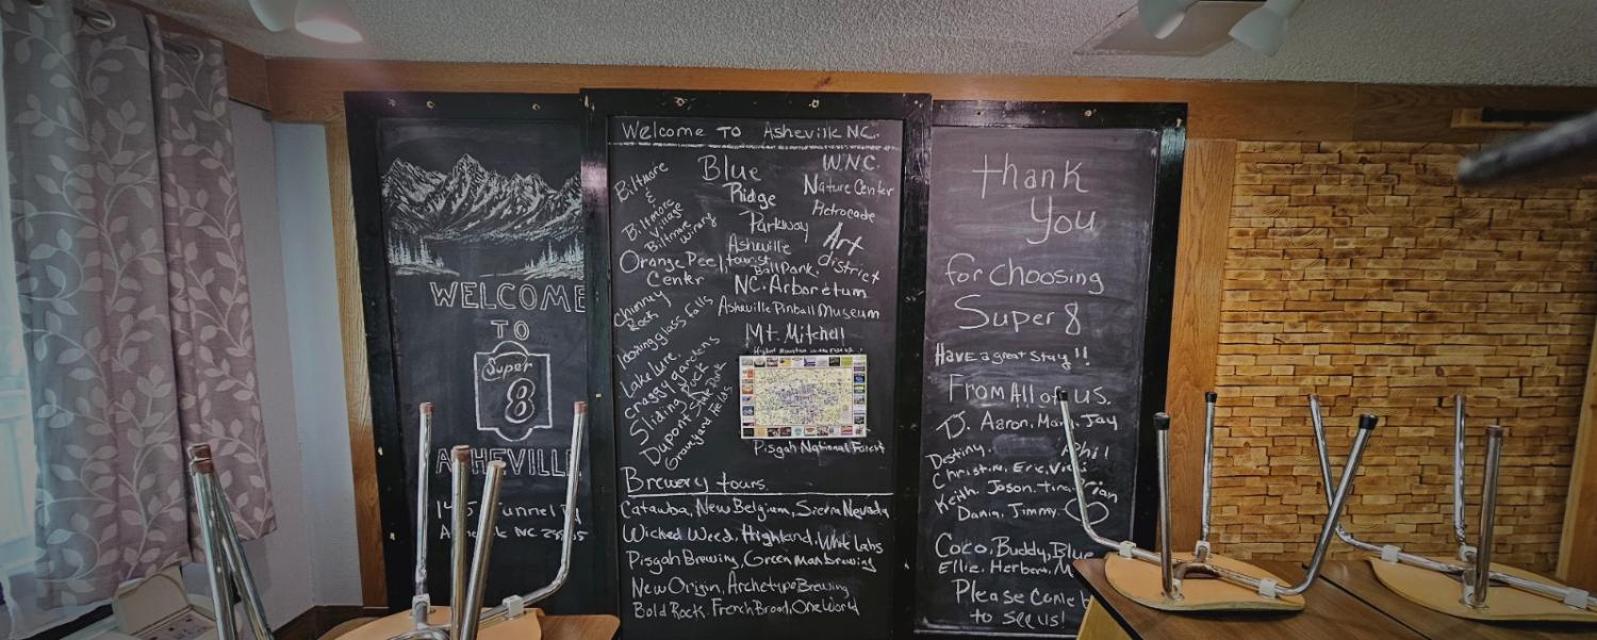 WELCOME
TO
Super
8
Welcome TO Asheville NC.
Biltmore
&
Biltmore
Village
Biltmore
Winery
Orange Peel
Center
Chimney
Rock
looking glass falls
Lake lure.
craggy gardens
Sliding Rock
Dupont State Park
Graveyard Fields
Blue
Ridge
Parkway
Asheville
tourist
Ball Park.
NC. Arboretum
Asheville Pinball Museum
Mt. Mitchell
W.N.C.
Nature Center
Retrocade
Art
district
Pisgah National Forest
Brewery tours.
Catawba, New Belgium, Sierra Nevada
Wicked Weed, Highland, White labs
Pisgah Brewing, Green man brewing
New Origin, Archetype Brewing
Bold Rock, French Broad, One World
thank
You
for choosing
Super 8
Have a great stay!!
From All of us.
D. Aaron, Mary, Jay
Destiny. Phil
Christina, Eric, Vicki
Keith, Jason, Tina
Dania, Jimmy.
Coco, Buddy, Blue
Ellie, Herbert,
Please Come
to see us!